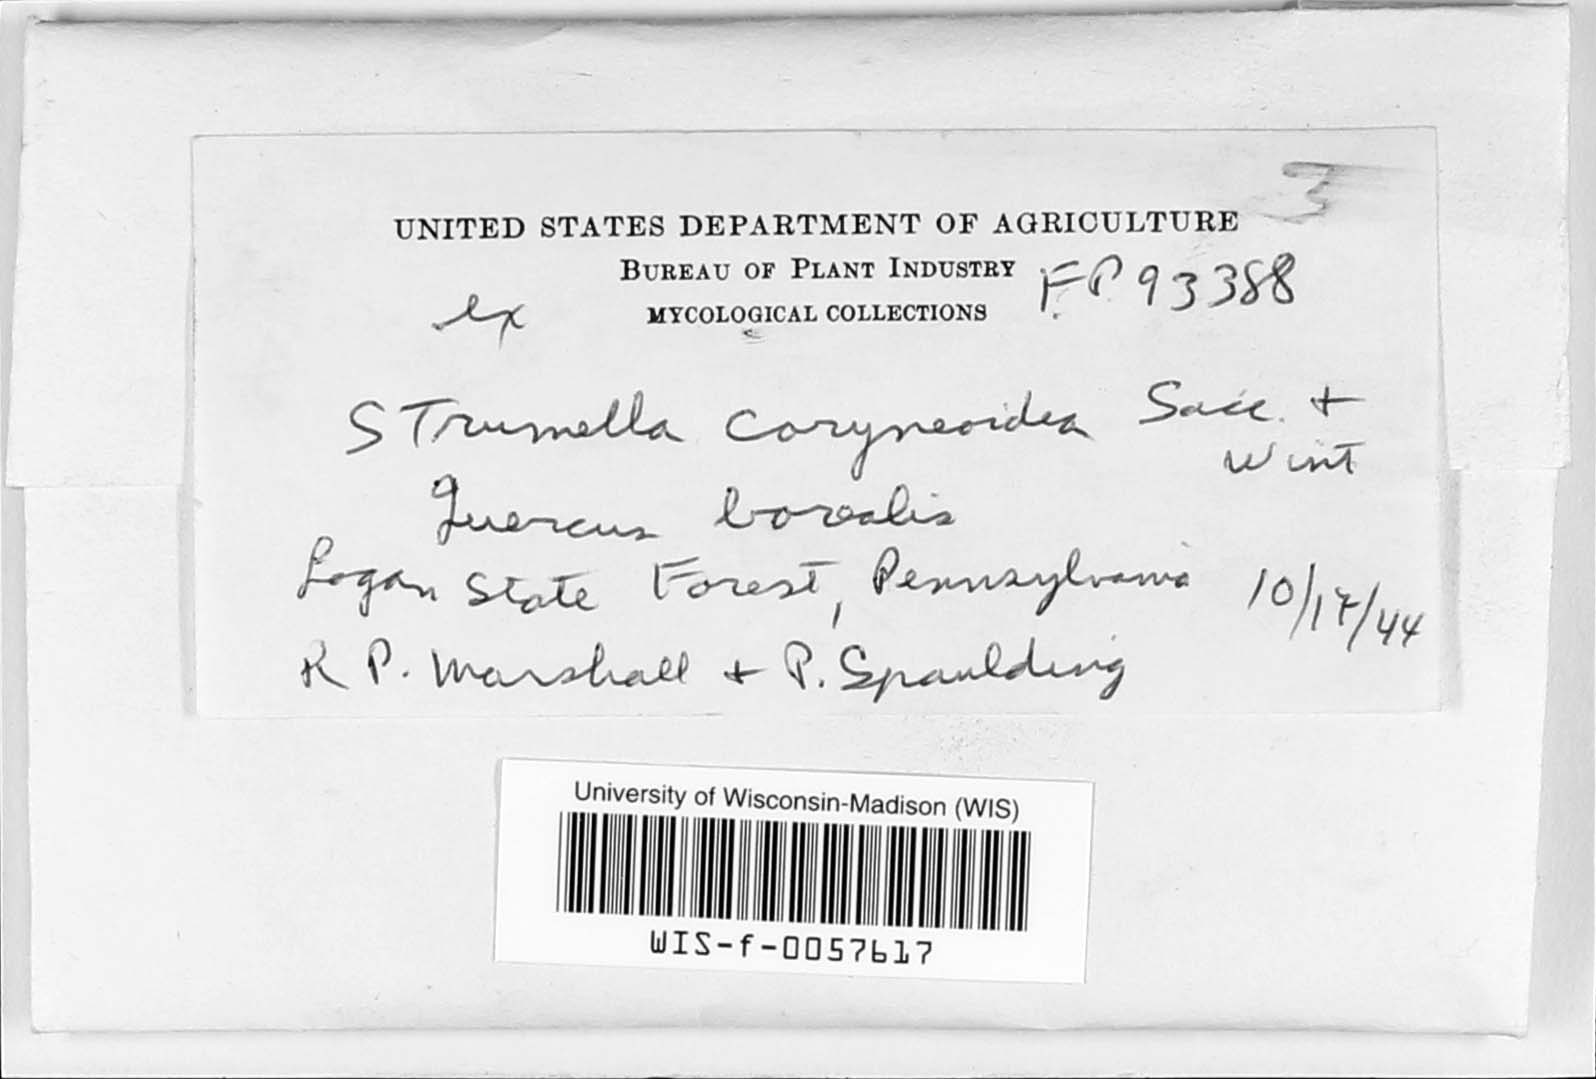 3
UNITED STATES DEPARTMENT OF AGRICULTURE
BUREAU OF PLANT INDUSTRY
ex MYCOLOGICAL COLLECTIONS F.P. 93388
Strumella coryneoidea Sacc. +
Wint
Quercus borealis
Logan State Forest, Pennsylvania 10/17/44
R P. Marshall + P. Spaulding
University of Wisconsin-Madison (WIS)
WIS-f-0057617